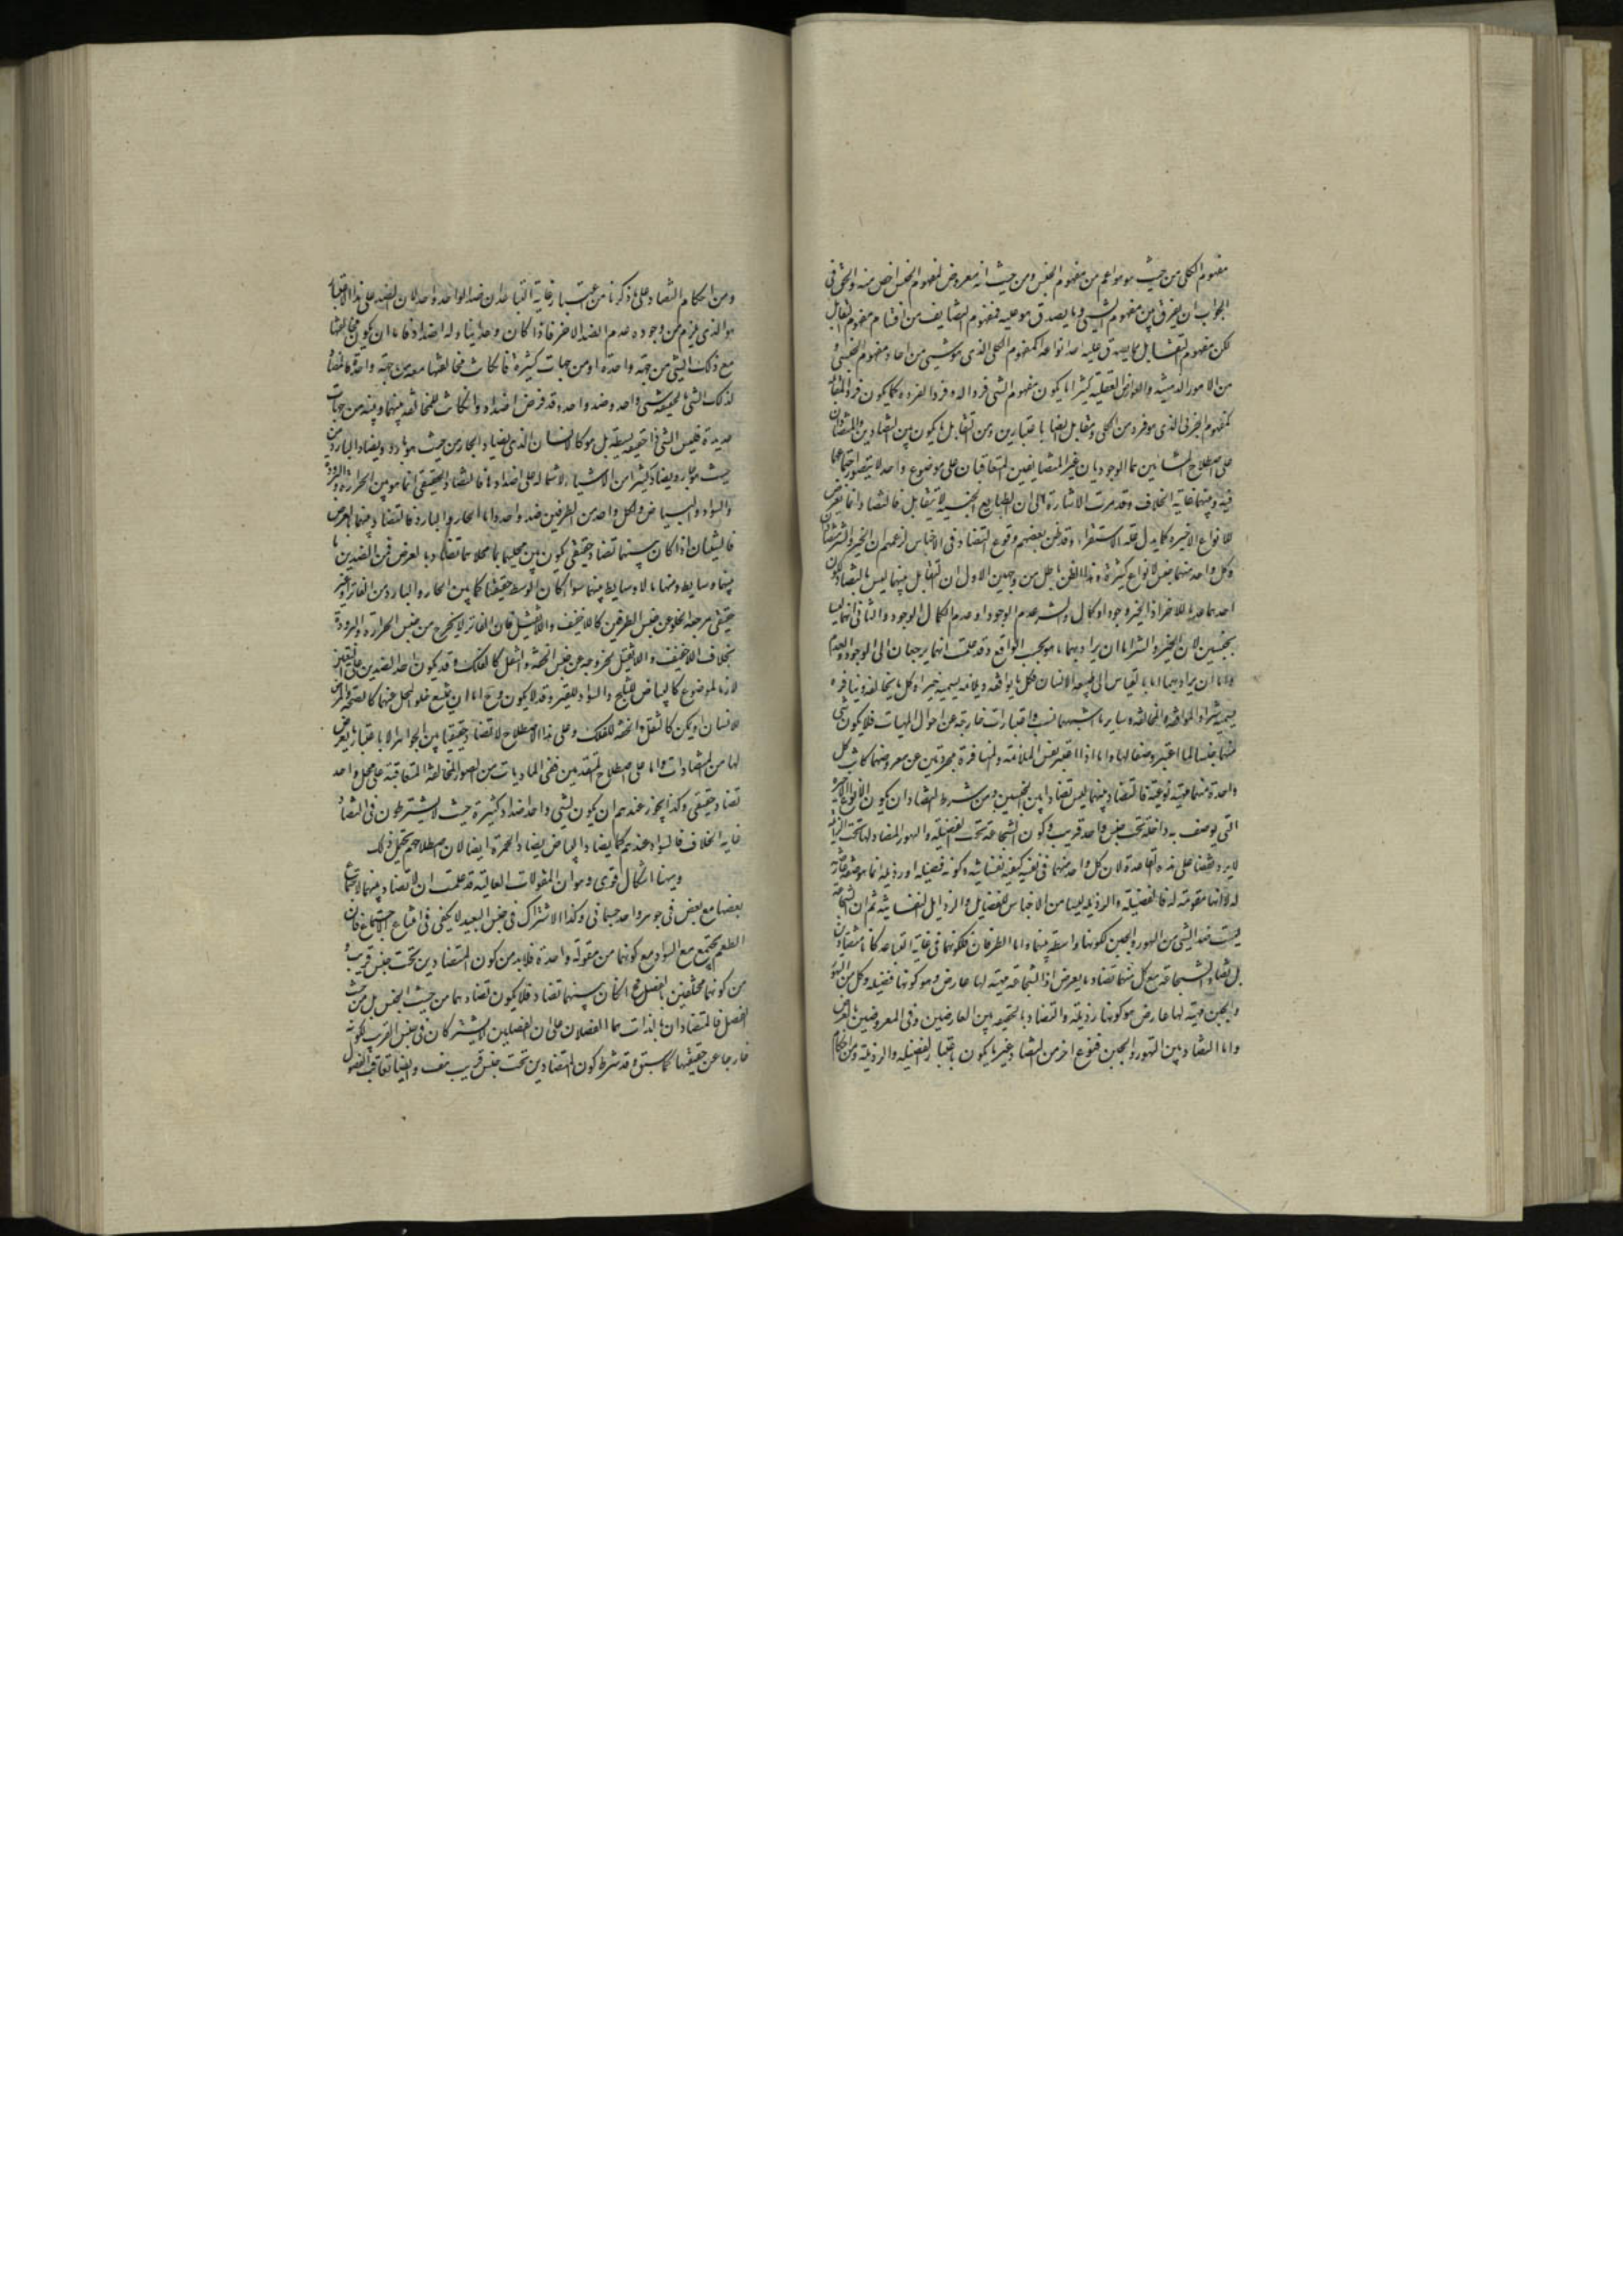 مفهوم الكلى من حيث هو هو اعم من مفهوم الجنس ومن حيث انه معروض لمفهوم الجنس اخص منه والحق فى
الجواب ان يفرق بين مفهوم الشىء وما يصدق هو عليه فمفهوم التضايف من اقسام مفهوم التقابل
لكن مفهوم التقابل مما يصدق عليه احد انواعه كمفهوم الكلى الذى هو شىء من احاد مفهوم الجنس و
من الامور الذهنية والعوارض العقلية كثيرا ما يكون مفهوم الشى فردا له وفردا لفرده كما يكون فردا لمقابله
كمفهوم الجزئى الذى هو فرد من الكلى ومقابل له ايضا باعتبارين ومن التقابل ما يكون بين المتضادين والمتضادان
على اصطلاح المشائين هما الوجوديان غير المتضايفين المتعاقبان على موضوع واحد لا يتصور اجتماعهما
فيه وبينهما غاية الخلاف وقد مرت الاشارة الى ان الطبايع الجنسية لا يتقابل فالتضاد انما يعرض
للانواع الاخيرة كما يدل عليه الاستقراء وقد ظن بعضهم وقوع التضاد فى الاجناس لزعمهم ان الخير والشر متضادان
وكل واحد منهما جنس لانواع كثيرة وهذا الظن باطل من وجهين الاول ان التقابل بينهما ليس بالتضاد لكون
احدهما عدما للاخر اذ الخير وجود او كمال والشر عدم الوجود او عدم الكمال الوجود والثانى انهما ليسا
بجنسين لان الخير والشر اما ان يراد بهما ما هو بحسب الواقع وقد علمت انهما يرجعان الى الوجود والعدم
واما ان يراد بهما ما بالقياس الى طبيعة الانسان فكل ما يوافقه ويلائمه يسميه خيرا وكل ما يخالفه وينافره
يسميه شرا والموافقة والمخالفة وساير ما اشبههما نسب واعتبارات خارجة عن احوال المهيات فلا يكون شىء
منهما جنسا لما اعتبر وصفا لها واما اذا اعتبر نفس الملائمة والمنافرة مجردتين عن معروضهما كانت كل
واحدة منهما مهية نوعية فالتضاد بينهما ليس تضادا بين الجنسين ومن شرط التضاد ان يكون الانواع الاخيرة
التى يوصف به داخلة تحت جنس واحد قريب وكون الشجاعة تحت الفضيلة والتهور المضاد لها تحت الرذيلة
لا يرد نقضا على هذه القاعدة لان كل واحد منهما فى نفسه كيفية نفسانية وكونه فضيلة او رذيلة انما هو صفة عارضة
له لا انها مقومة له فالفضيلة والرذيلة ليسا من الاجناس للفضايل والرذايل النفسانية ثم ان الشجاعة
ليست ضدا لشىء من التهور والجبن لكونها واسطة بينهما واما الطرفان فلكونهما فى غاية التباعد كانا متضادين
بل تضاد الشجاعة مع كل منهما تضاد ما يعرض اذ الشجاعة مهية لها عارض وهو كونها فضيلة وكل من التهور
والجبن مهية لها عارض هو كونها رذيلة والتضاد بالحقيقة بين العارضين وفى المعروضين بالعرض
واما التضاد بين التهور والجبن فنوع اخر من التضاد غير ما يكون باعتبار الفضيلة والرذيلة ومن احكام
ومن احكام التضاد على ما ذكرنا من اعتبار غاية التباعد ان ضد الواحد واحد لان الضد على هذا الاعتبار
هو الذى يلزم من وجوده عدم الضد الاخر فاذا كان وحدانيا وله اضداد فاما ان يكون مخالفتها
مع ذلك الشىء من جهة واحدة او من جهات كثيرة فان كانت مخالفتها معه من جهة واحدة فالمضاد
لذلك الشىء بالحقيقة شىء واحد وضد واحد وقد فرض اضداد وان كانت المخالفة بينها وبينه من جهات
عديدة فليس الشىء ذا حقيقة بسيطة بل هو كالانسان الذى يضاد الحار من حيث هو بارد ويضاد البارد من
حيث هو حار ويضاد كثيرا من الاشياء لاشتماله على اضدادها فالتضاد الحقيقى انما هو بين الحرارة والبرودة
والسواد والبياض ولكل واحد من الطرفين ضد واحد واما الحار والبارد فالتضاد بينهما بالعرض
فالشيئان اذا كان بينهما تضاد حقيقى يكون بين محليهما بما هما محلاهما تضاد بالعرض فمن الضدين ما
بينهما وسايط ومنها ما لا وسايط بينهما سواء كان الوسط حقيقيا كما بين الحار والبارد من الفاتر او غير
حقيقى مرجعه الخلو عن جنس الطرفين كاللاخفيف واللاثقيل فان الفاتر لا يخرج من جنس الحرارة والبرودة
بخلاف اللاخفيف واللاثقيل لخروجه عن جنس الخفة والثقل كالفلك وقد يكون احد الضدين على التعيين
لازما لموضوع كالبياض للثلج والسواد للقير وقد لا يكون وح اما ان يمتنع خلو المحل عنهما كالصحة والمرض
للانسان او يمكن كالثقل والخفة للفلك وعلى هذا الاصطلاح لا تضاد حقيقيا بين الجواهر الا باعتبار ما يعرض
لها من المتضادات واما على اصطلاح المتقدمين ففى الماديات من الصور المتخالفة المتعاقبة على محل واحد
تضاد حقيقى وكذا يجوز عندهم ان يكون لشىء واحد اضداد كثيرة حيث لا يشترطون فى التضاد
غاية الخلاف فالسواد عندهم كما يضاد البياض يضاد الحمرة ايضا لان اصطلاحهم يحتمل ذلك
وههنا اشكال قوى وهو ان المقولات العالية قد علمت ان لا تضاد بينهما لاجتماع
بعضها مع بعض فى جوهر واحد جسمانى وكذا الاشتراك فى جنس البعيد لا يكفى فى امتناع الاجتماع فان
الطعم يجتمع مع السواد مع كونهما من مقولة واحدة فلابد من كون المتضادين تحت جنس قريب و
من كونهما مختلفين بالفصل فح ان كان بينهما تضاد فلا يكون تضادهما من حيث الجنس بل من حيث
الفصل فالمتضادان بالذات هما الفصلان على ان الفصلين لا يشتركان فى جنس القريب لكونه
خارجا عن حقيقتهما كما سبق وقد شرط كون المتضادين تحت جنس قريب هف وايضا تعاقب الفصول